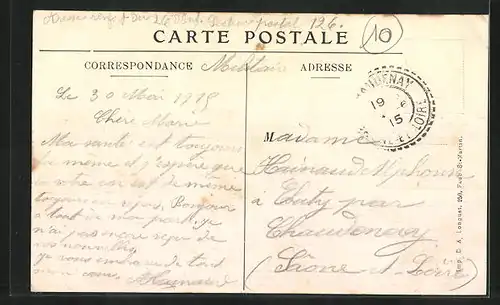 postal 126.
10
CARTE POSTALE
CORRESPONDANCE Militaire
ADRESSE
Le 30 Mai 1915
Chère Marie
Ma santé est toujours
la même et j'espère que
la votre est de même
toujours en repos, Bonjour
à tout de ma part, je
n'ai pas encore reçu de
vos nouvelles,
je vous embrasse de tout
mon cœur.
CHAUDENAY
19
15
SAONE-ET-LOIRE
Madame
Hainaud Alphonse
à par
Chaudenay
(Saône et Loire)
Imp. D. A. Longuet, 250, Faub. St-Martin.